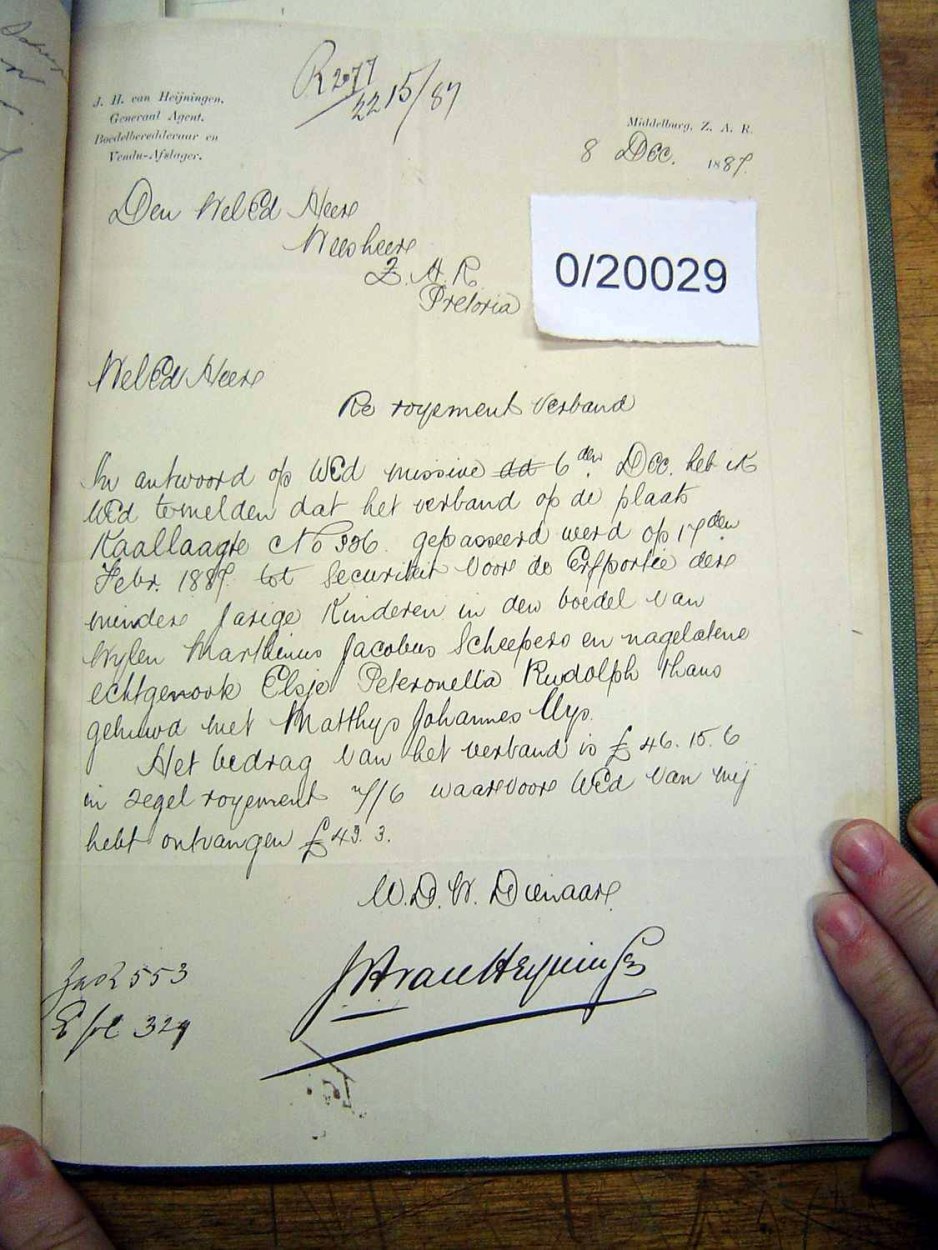 R2077
2215/87
J. H. van Heijningen,
Generaal Agent.
Boedelberedderaar en
Vendu-Afslager.
Middelburg, Z. A. R.
8 Dec. 1887.
Den WelEd Heere
Weesheere
Z. A. R.
Pretoria
0/20029
WelEd Heere
Re royement Verband
In antwoord op WEd missive dd 6den Dec. heb ik
WEd te melden dat het verband op de plaats
Kaallaagte No 306. gepasseerd werd op 17den
Febr. 1887. tot Securiteit voor de Erfportie dere
mindere Jarige Kinderen in den boedel van
Wylen Marthinus Jacobus Scheepers en nagelatene
echtgenoote Elsje Peteronella Rudolph thans
gehuwd met Matthys Johannes Uys.
Het bedrag van het verband is £ 46. 15. 6
in zegel royement 7/6 waarvoor WEd van mij
hebt ontvangen £ 3.
W. D. W. Dienaare
JHvanHeyningen
553
E fol 329